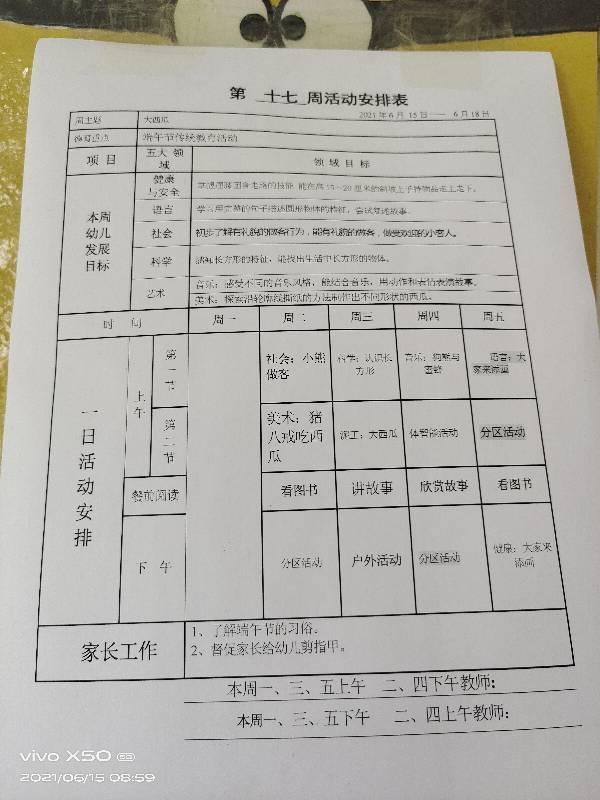 第 十七 周活动安排表
2021年6月 15日 —— 6月18日
周主题 大西瓜
德育重点 端午节传统教育活动
项 目 五大 领域 领 域 目 标
本周幼儿发展目标
健康与安全
语言
社会 初步了解有礼貌的做客行为，能有礼貌的做客，做受欢迎的小客人。
科学 感知长方形的特征，能找出生活中长方形的物体。
艺术 音乐：感受不同的音乐风格，能结合音乐，用动作和表情表演故事。
美术：探索沿轮廓线撕纸的方法制作出不同形状的西瓜。
时 间 周一 周二 周三 周四 周五
一日活动安排
上午 第一节 社会：小熊做客 科学：认识长方形 音乐：狗熊与蜜蜂 语言：大家来添画
第二节 美术：猪八戒吃西瓜 泥工：大西瓜 体智能活动 分区活动
餐前阅读 看图书 讲故事 欣赏故事 看图书
下 午 分区活动 户外活动 分区活动 健康：大家来添画
家长工作
1、了解端午节的习俗.
2、督促家长给幼儿剪指甲。
本周一、三、五上午 二、四下午教师:
本周一、三、五下午 二、四上午教师:
vivo X50 5G
2021/06/15 08:59